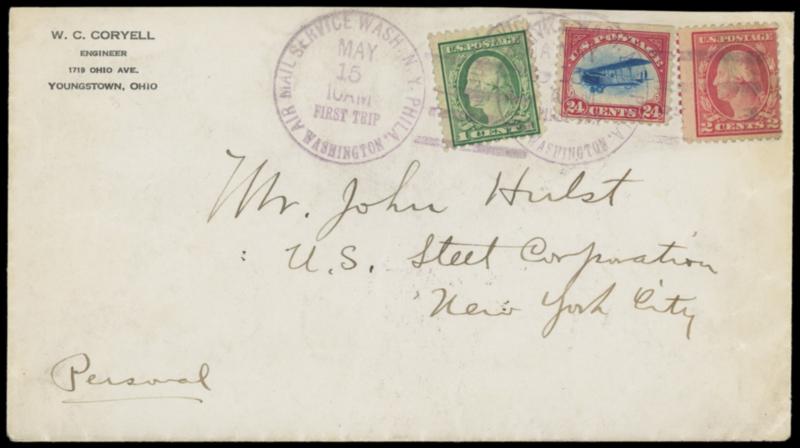 W. C. CORYELL
ENGINEER
1719 OHIO AVE.
YOUNGSTOWN, OHIO
AIR MAIL SERVICE WASH. N. Y. PHILA.
MAY
15
10AM
FIRST TRIP
WASHINGTON.
U.S. POSTAGE
1 CENT 1
U.S. POSTAGE
24 CENTS 24
U.S. POSTAGE
2 CENTS 2
WASHINGTON.
Mr. John Hulst
U.S. Steel Corporation
New York City
Personal